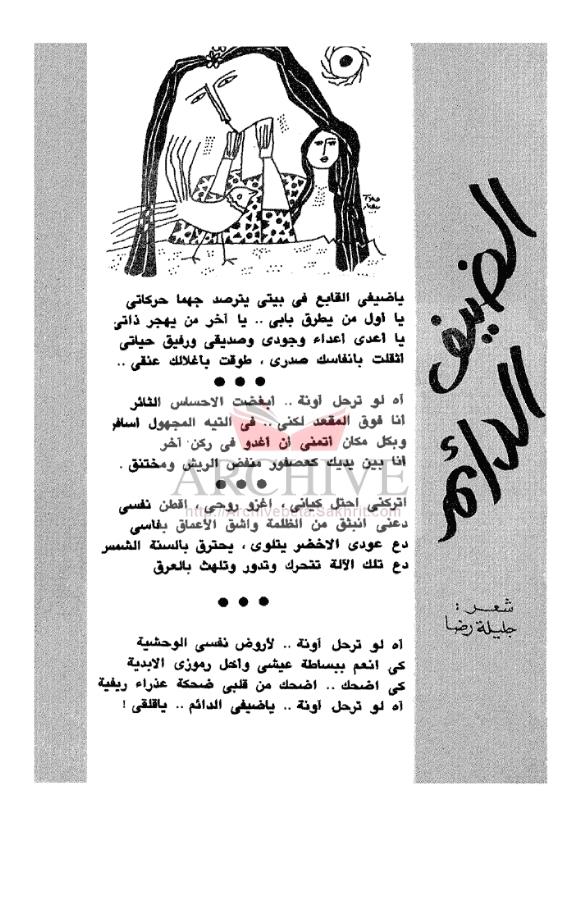 الضيف
الدائم
شعر :
جليلة رضا
ياضيفى القابع فى بيتى يترصد جهما حركاتى
يا أول من يطرق بابى .. يا آخر من يهجر ذاتى
يا أعدى أعداء وجودى وصديقى ورفيق حياتى
أثقلت بأنفاسك صدرى ، طوقت بأغلالك عنقى ..
● ● ●
أه لو ترحل أونة .. أبغضت الاحساس الثائر
أنا فوق المقعد لكنى .. فى التيه المجهول أسافر
وبكل مكان أتمنى أن أغدو فى ركن آخر
أنا بين يديك كعصفور منفض الريش ومختنق .
● ● ●
اتركنى احتل كيانى ، أغزو روحى ، اقطن نفسى
دعنى انبثق من الظلمة واشق الأعماق بفاسى
دع عودى الاخضر يتلوى ، يحترق بألسنة الشمس
دع تلك الآلة تتحرك وتدور وتلهث بالعرق
● ● ●
أه لو ترحل أونة .. لأروض نفسى الوحشية
كى انعم ببساطة عيشى وأحل رموزى الابدية
كى اضحك .. اضحك من قلبى ضحكة عذراء ريفية
أه لو ترحل أونة .. ياضيفى الدائم .. ياقلقى !
ARCHIVE
http://Archivebeta.Sakhrit.com